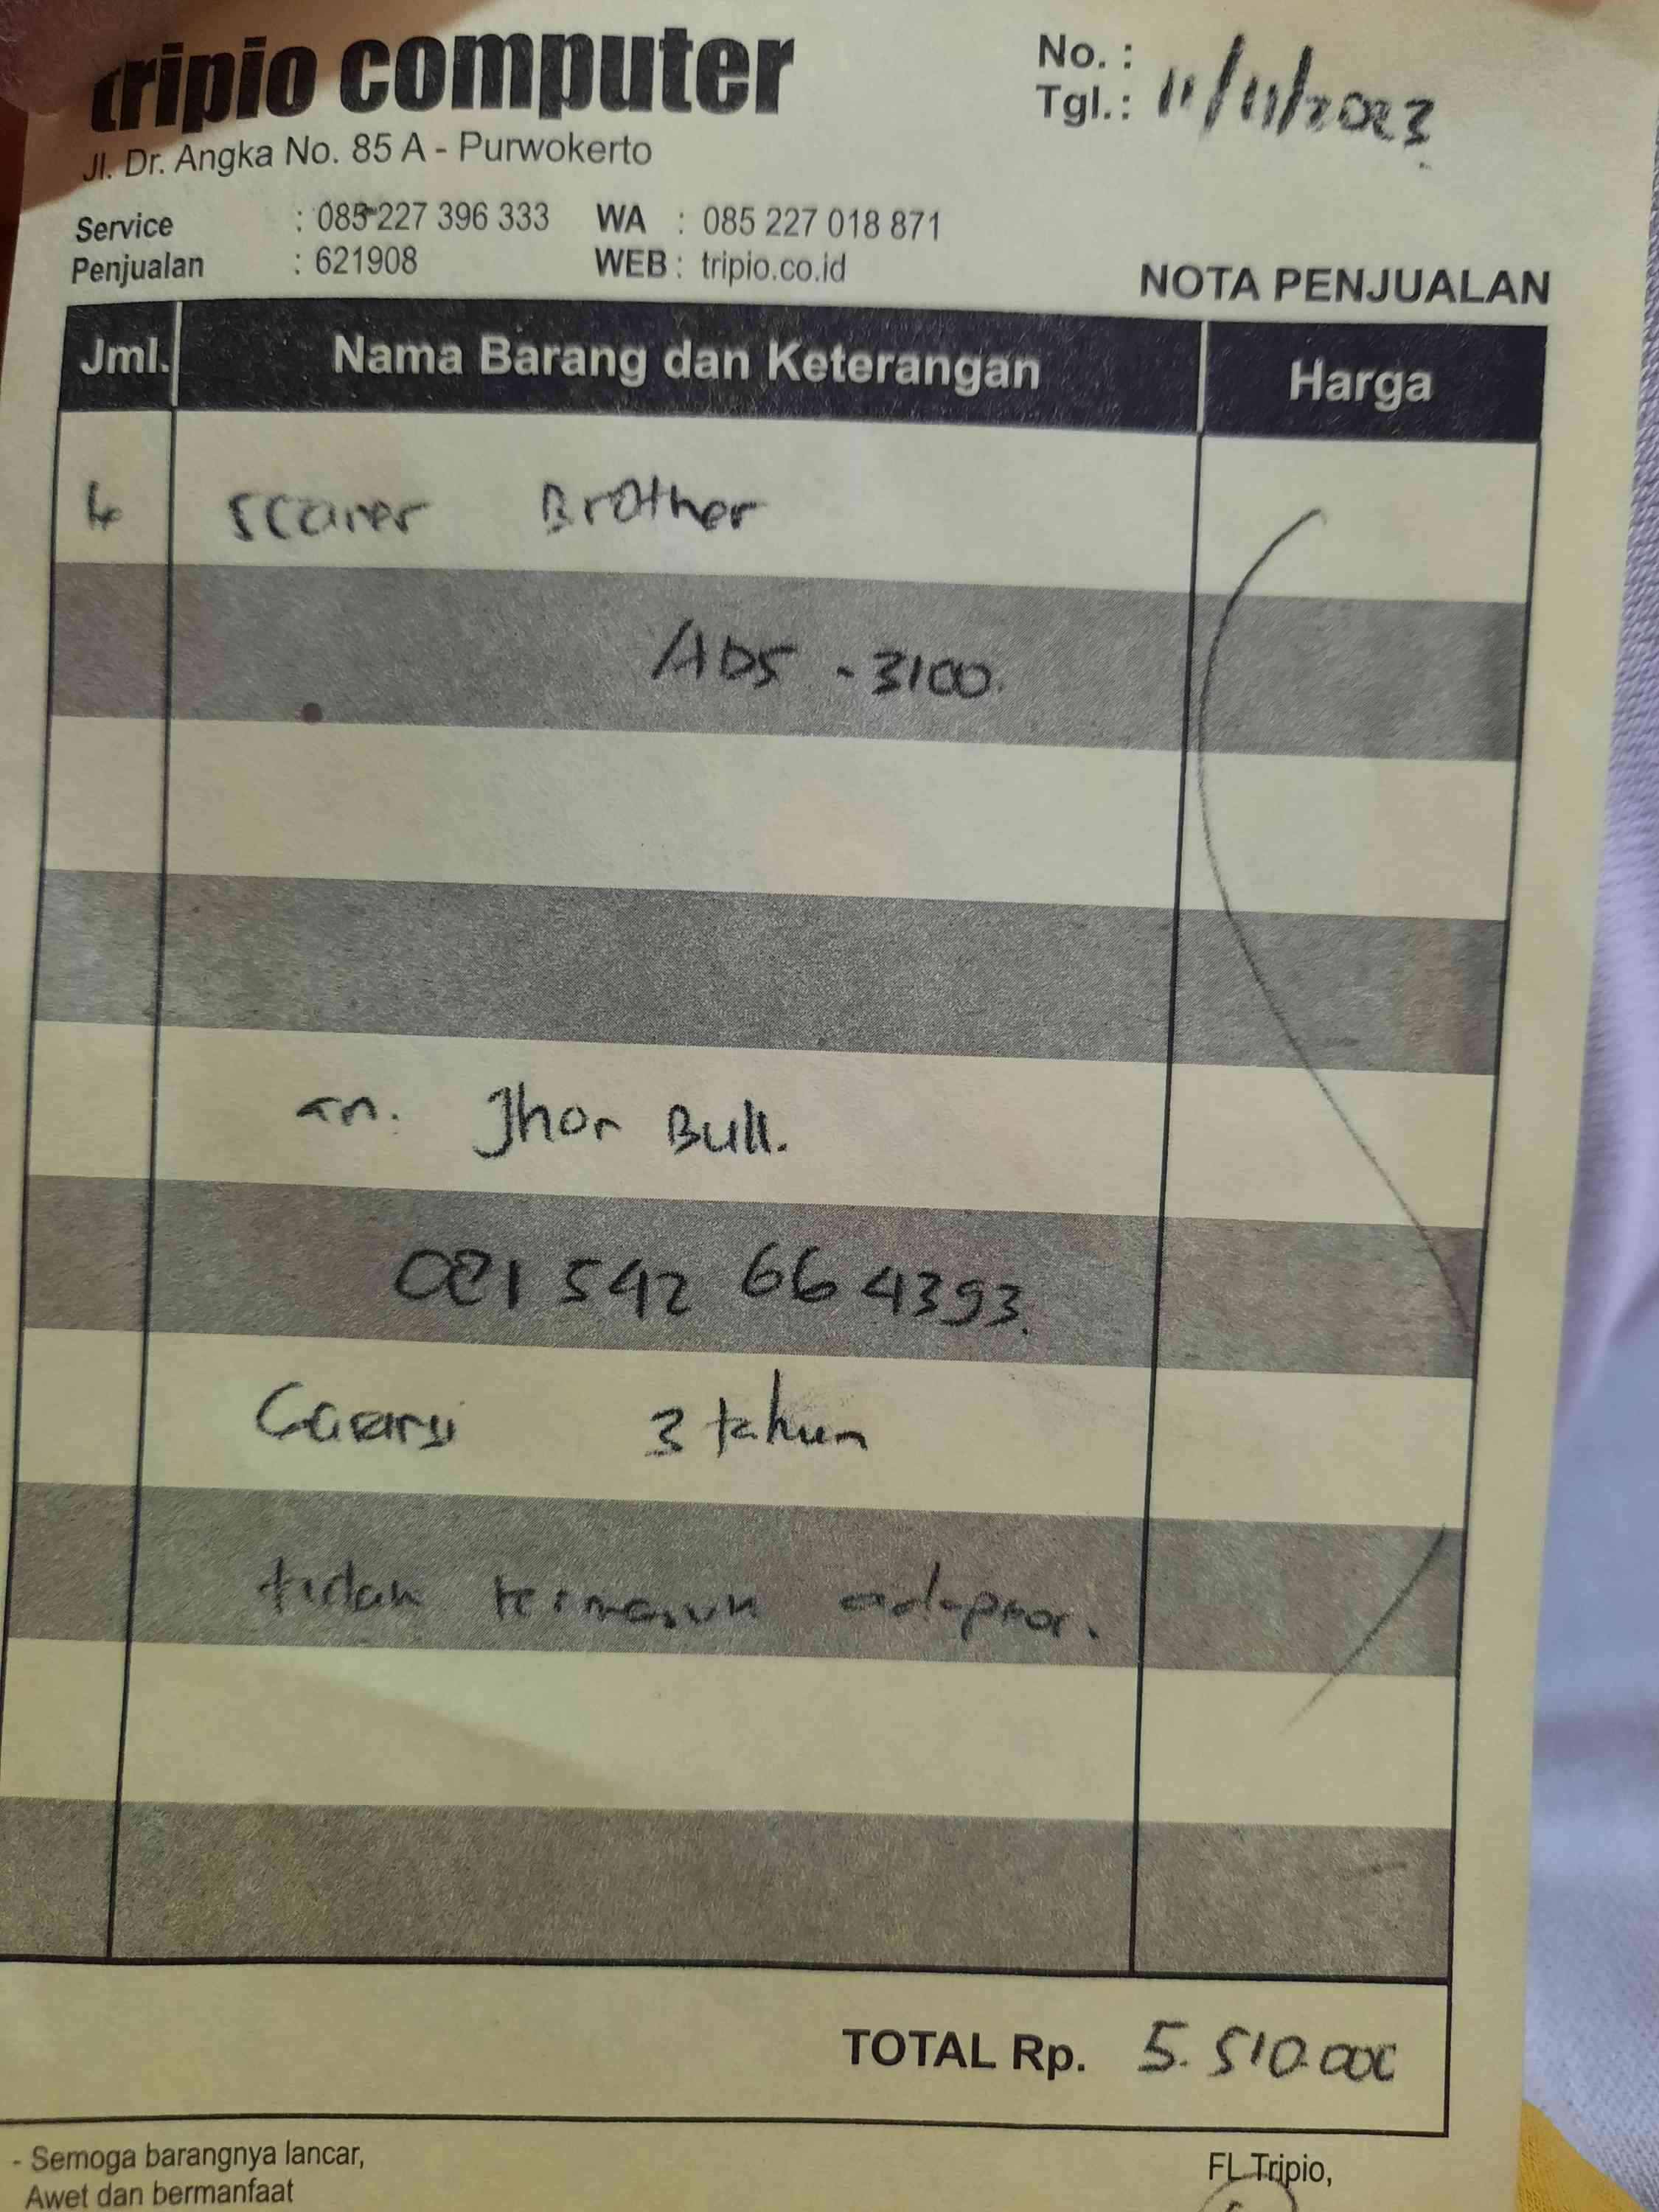 tripio computer
Jl. Dr. Angka No. 85 A - Purwokerto
No. :
Tgl. : 11/11/2023
Service : 085 227 396 333 WA : 085 227 018 871
Penjualan : 621908 WEB : tripio.co.id
NOTA PENJUALAN
Jml. Nama Barang dan Keterangan Harga
Scaner Brother
ADS - 3100.
an. Jhon Bull.
081 542 66 4393.
Garansi 3 tahun
tidak termasuk adaptor.
TOTAL Rp. 5.510.000
- Semoga barangnya lancar,
Awet dan bermanfaat
FL Tripio,